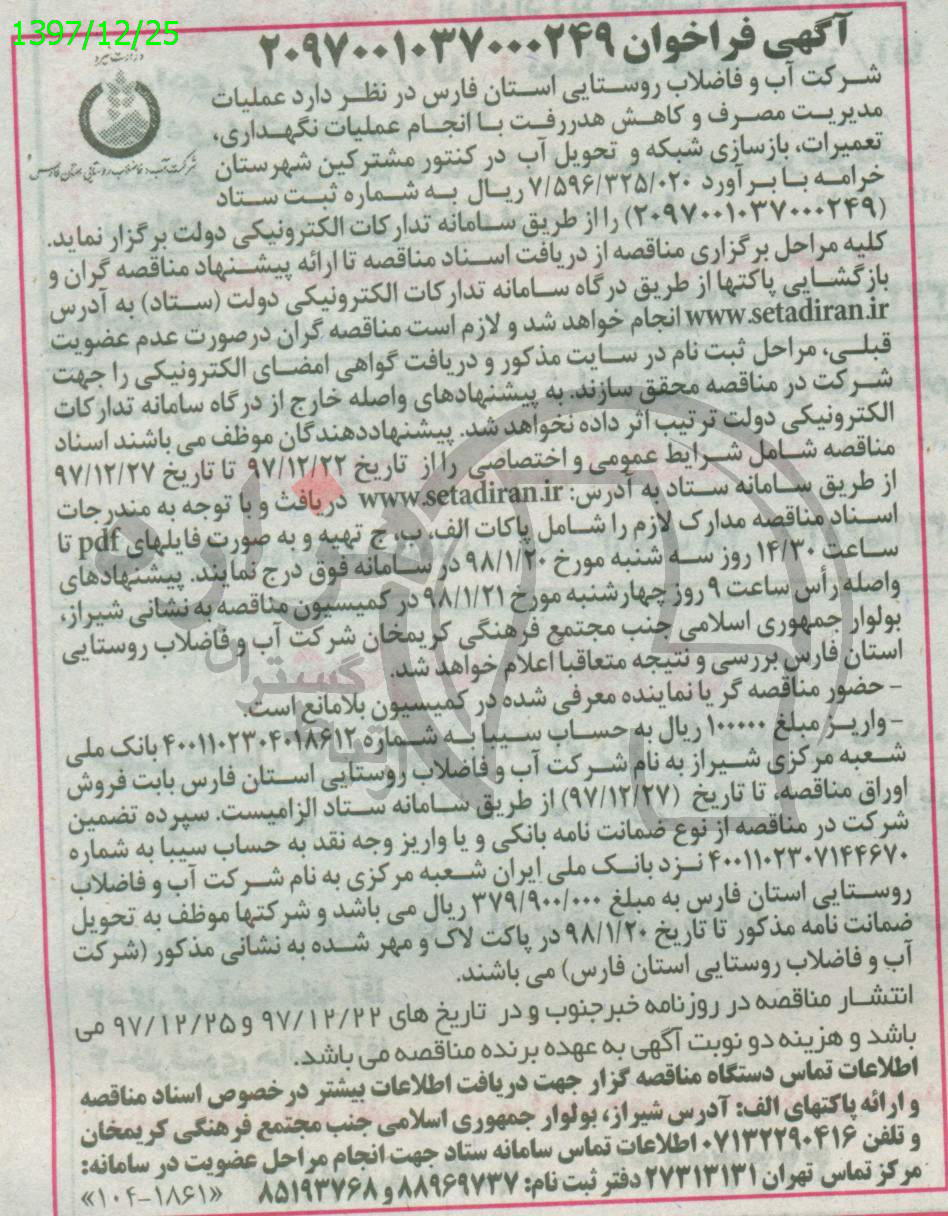 1397/12/25
آگهی فراخوان ۲۰۹۷۰۰۱۰۳۷۰۰۰۲۴۹
وزارت نیرو
شرکت آب و فاضلاب روستایی استان فارس
شرکت آب و فاضلاب روستایی استان فارس در نظر دارد عملیات
مدیریت مصرف و کاهش هدررفت با انجام عملیات نگهداری،
تعمیرات، بازسازی شبکه و تحویل آب در کنتور مشترکین شهرستان
خرامه با برآورد ۷/۵۹۶/۳۲۵/۰۲۰ ریال به شماره ثبت ستاد
(۲۰۹۷۰۰۱۰۳۷۰۰۰۲۴۹) را از طریق سامانه تدارکات الکترونیکی دولت برگزار نماید.
کلیه مراحل برگزاری مناقصه از دریافت اسناد مناقصه تا ارائه پیشنهاد مناقصه گران و
بازگشایی پاکتها از طریق درگاه سامانه تدارکات الکترونیکی دولت (ستاد) به آدرس
www.setadiran.ir انجام خواهد شد و لازم است مناقصه گران درصورت عدم عضویت
قبلی، مراحل ثبت نام در سایت مذکور و دریافت گواهی امضای الکترونیکی را جهت
شرکت در مناقصه محقق سازند. به پیشنهادهای واصله خارج از درگاه سامانه تدارکات
الکترونیکی دولت ترتیب اثر داده نخواهد شد. پیشنهاددهندگان موظف می باشند اسناد
مناقصه شامل شرایط عمومی و اختصاصی را از تاریخ ۹۷/۱۲/۲۲ تا تاریخ ۹۷/۱۲/۲۷
از طریق سامانه ستاد به آدرس: www.setadiran.ir دریافت و با توجه به مندرجات
اسناد مناقصه مدارک لازم را شامل پاکات الف، ب، ج تهیه و به صورت فایلهای pdf تا
ساعت ۱۴/۳۰ روز سه شنبه مورخ ۹۸/۱/۲۰ در سامانه فوق درج نمایند. پیشنهادهای
واصله رأس ساعت ۹ روز چهارشنبه مورخ ۹۸/۱/۲۱ در کمیسیون مناقصه به نشانی شیراز،
بولوار جمهوری اسلامی جنب مجتمع فرهنگی کریمخان شرکت آب و فاضلاب روستایی
استان فارس بررسی و نتیجه متعاقبا اعلام خواهد شد.
- حضور مناقصه گر یا نماینده معرفی شده در کمیسیون بلامانع است.
- واریز مبلغ ۱۰۰۰۰۰۰ ریال به حساب سیبا به شماره ۴۰۰۱۱۰۲۳۰۴۰۱۸۶۱۲ بانک ملی
شعبه مرکزی شیراز به نام شرکت آب و فاضلاب روستایی استان فارس بابت فروش
اوراق مناقصه، تا تاریخ (۹۷/۱۲/۲۷) از طریق سامانه ستاد الزامیست. سپرده تضمین
شرکت در مناقصه از نوع ضمانت نامه بانکی و یا واریز وجه نقد به حساب سیبا به شماره
۴۰۰۱۱۰۲۳۰۷۱۴۴۶۷۰ نزد بانک ملی ایران شعبه مرکزی به نام شرکت آب و فاضلاب
روستایی استان فارس به مبلغ ۳۷۹/۹۰۰/۰۰۰ ریال می باشد و شرکتها موظف به تحویل
ضمانت نامه مذکور تا تاریخ ۹۸/۱/۲۰ در پاکت لاک و مهر شده به نشانی مذکور (شرکت
آب و فاضلاب روستایی استان فارس) می باشند.
انتشار مناقصه در روزنامه خبرجنوب و در تاریخ های ۹۷/۱۲/۲۲ و ۹۷/۱۲/۲۵ می
باشد و هزینه دو نوبت آگهی به عهده برنده مناقصه می باشد.
اطلاعات تماس دستگاه مناقصه گزار جهت دریافت اطلاعات بیشتر درخصوص اسناد مناقصه
و ارائه پاکتهای الف: آدرس شیراز، بولوار جمهوری اسلامی جنب مجتمع فرهنگی کریمخان
و تلفن ۰۷۱۳۲۲۹۰۴۱۶ اطلاعات تماس سامانه ستاد جهت انجام مراحل عضویت در سامانه:
مرکز تماس تهران ۲۷۳۱۳۱۳۱ دفتر ثبت نام: ۸۸۹۶۹۷۳۷ و ۸۵۱۹۳۷۶۸ «۱۰۴-۱۸۶۱»